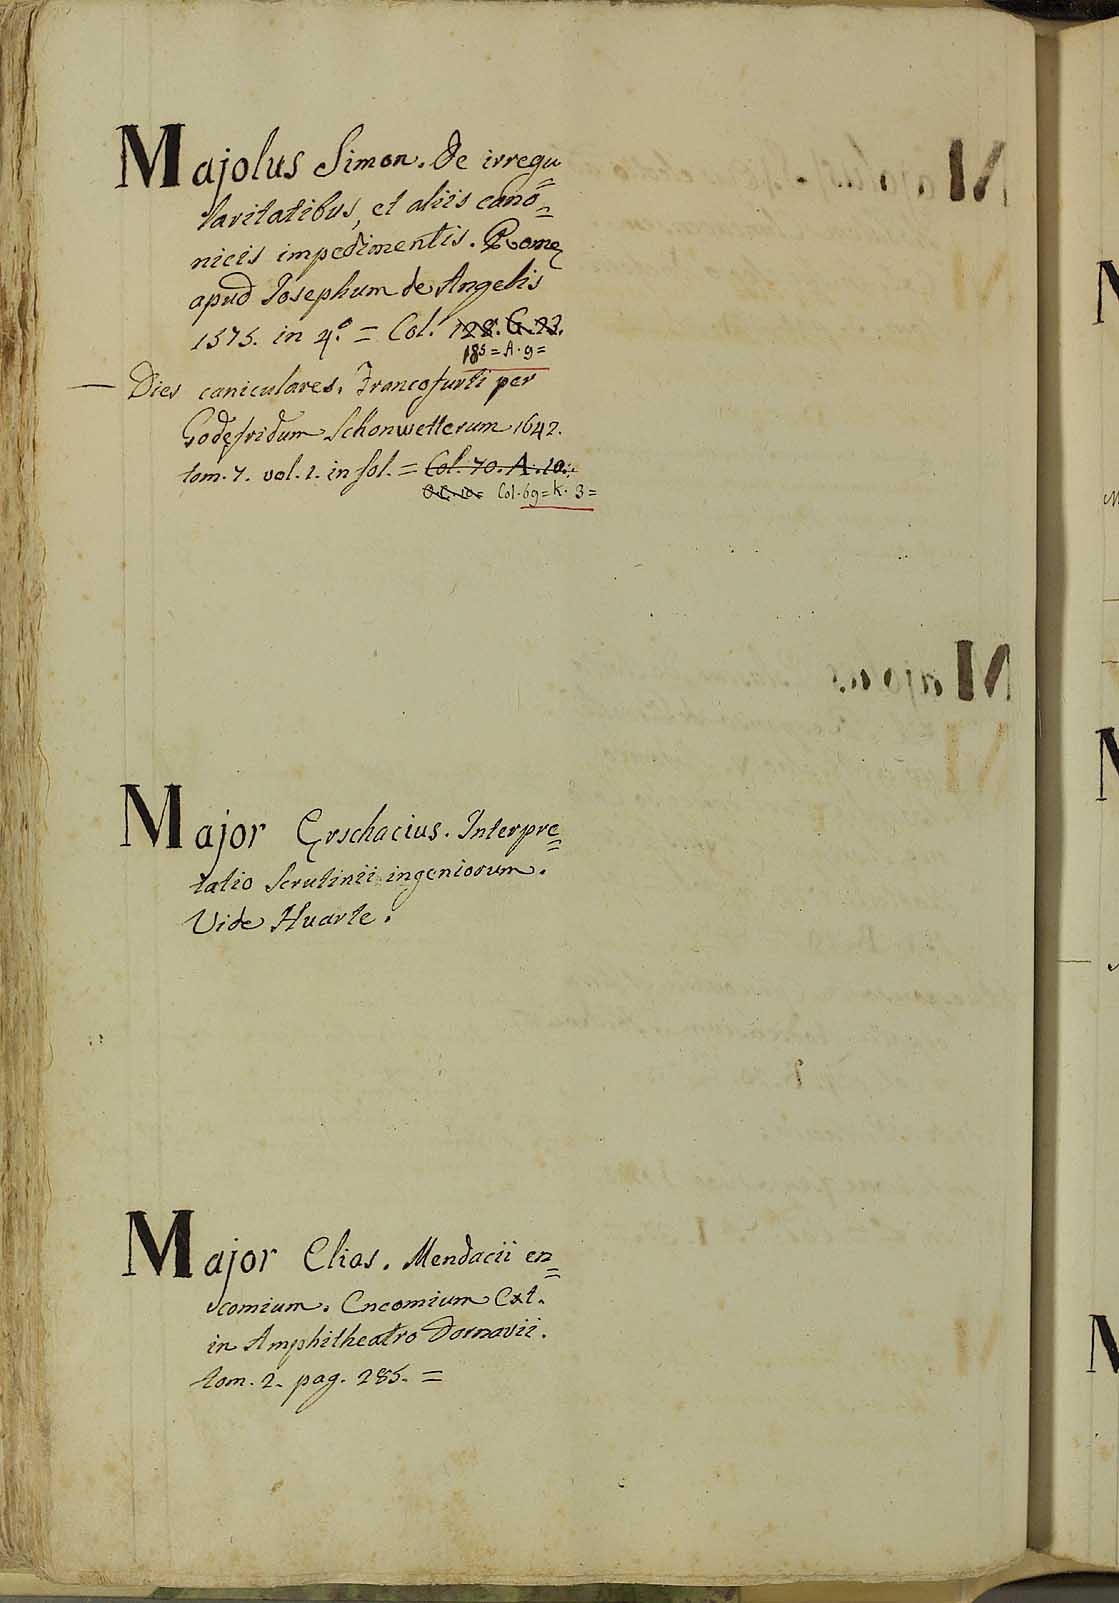 Majolus Simon. De irregu=
laritatibus, et aliis cano=
nicis impedimentis. Romę
apud Josephum de Angelis
1575. in 4.º = Col. 128. G. 23.
185 = A. 9 =
— Dies caniculares. Francofurti per
Godefridum Schonwetterum 1642.
tom. 7. vol. 1. in fol. = Col. 70. A. 10.
Col. 69 = K. 3 =
Major Erschacius. Interpre=
tatio Scrutinii ingeniorum.
Vide Huarte.
Major Elias. Mendacii en=
comium. Encomium Ext.
in Amphitheatro Dornavii.
tom. 2. pag. 285. =